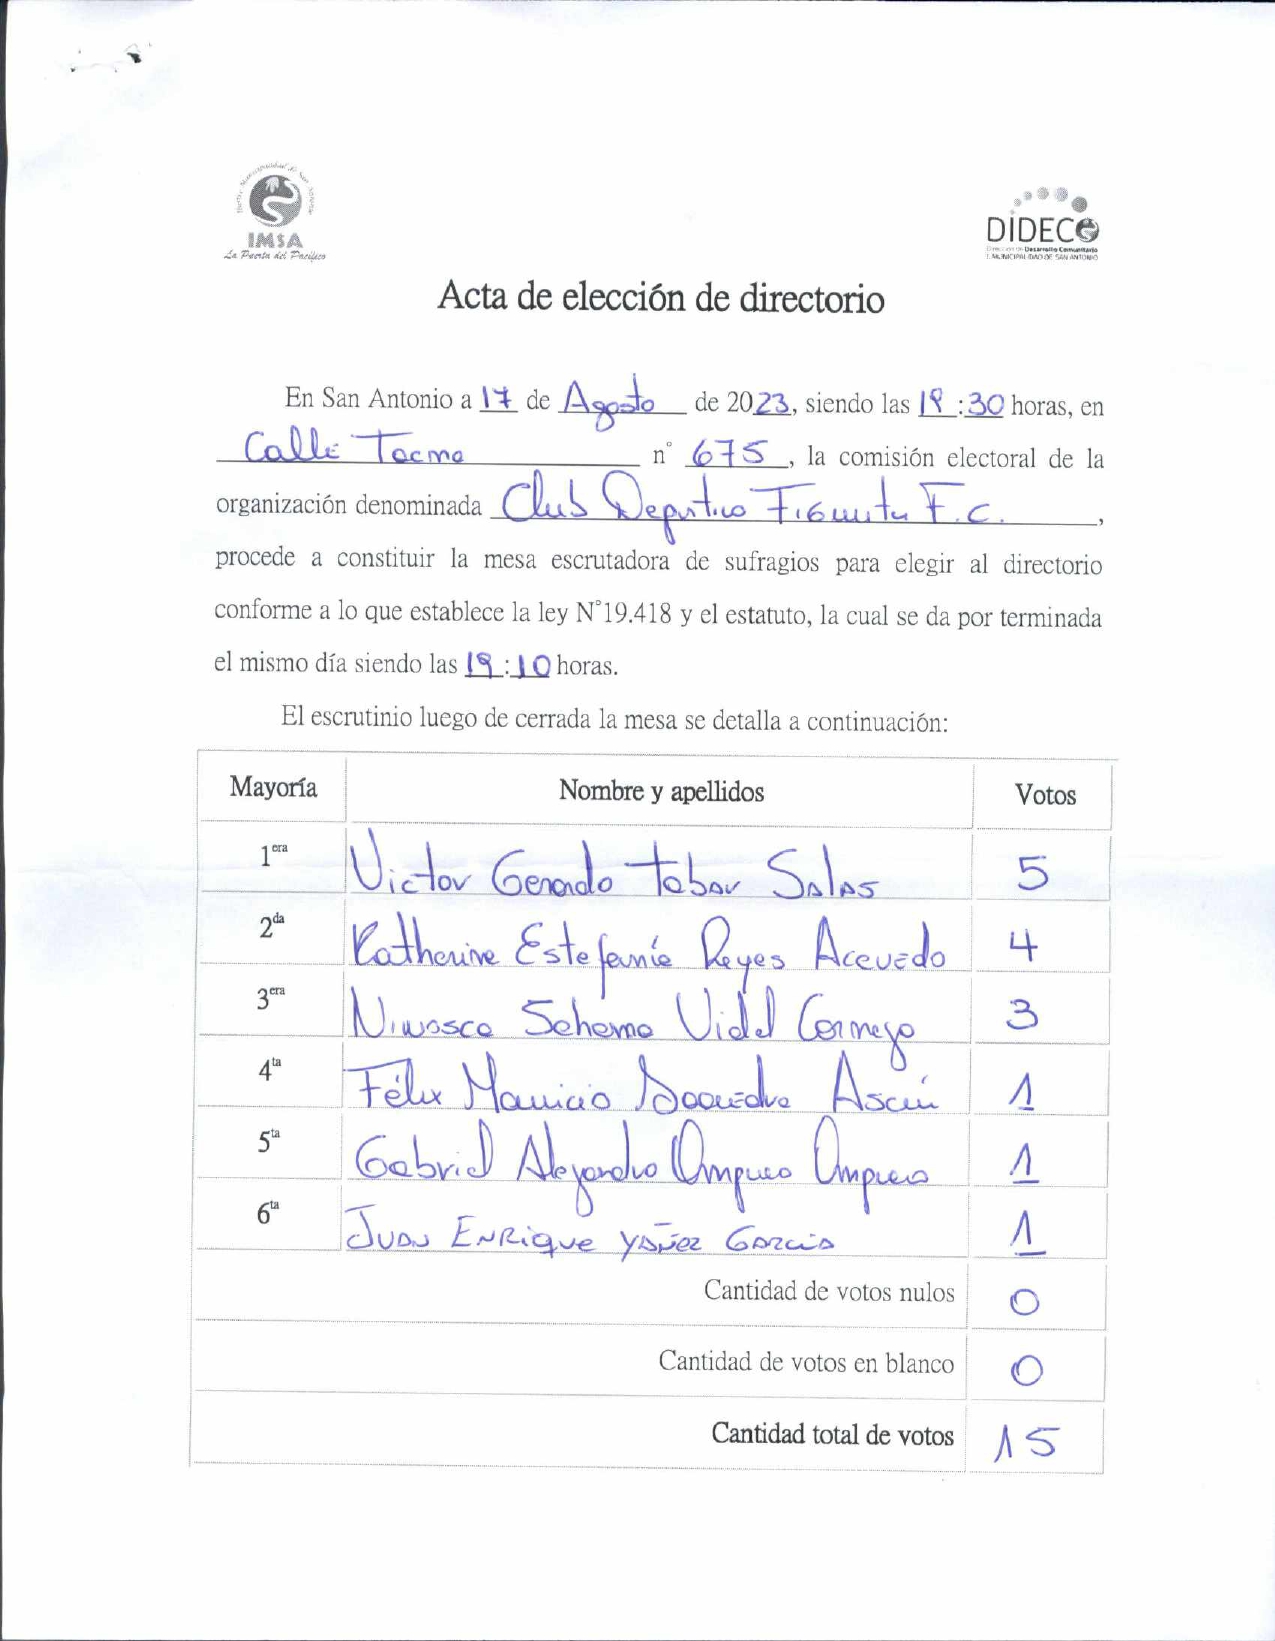 IMSA
La Puerta del Pacífico
DIDECO
Dirección de Desarrollo Comunitario
I. MUNICIPALIDAD DE SAN ANTONIO
Acta de elección de directorio
En San Antonio a 17 de Agosto de 2023, siendo las 18:30 horas, en
Calle Tacma n° 675, la comisión electoral de la
organización denominada Club Deportivo F.C.,
procede a constituir la mesa escrutadora de sufragios para elegir al directorio
conforme a lo que establece la ley N°19.418 y el estatuto, la cual se da por terminada
el mismo día siendo las 19:10 horas.
El escrutinio luego de cerrada la mesa se detalla a continuación:
Mayoría Nombre y apellidos Votos
1era Victor Gerardo Tabar Salas 5
2da Katherine Estefanie Reyes Acevedo 4
3era Niwosca Vidal Cornejo 3
4ta Félix Mauricio Saavedra 1
5ta Gabriel Alejandro Ampuero Ampuero 1
6ta Juan Enrique Yáñez García 1
Cantidad de votos nulos 0
Cantidad de votos en blanco 0
Cantidad total de votos 15